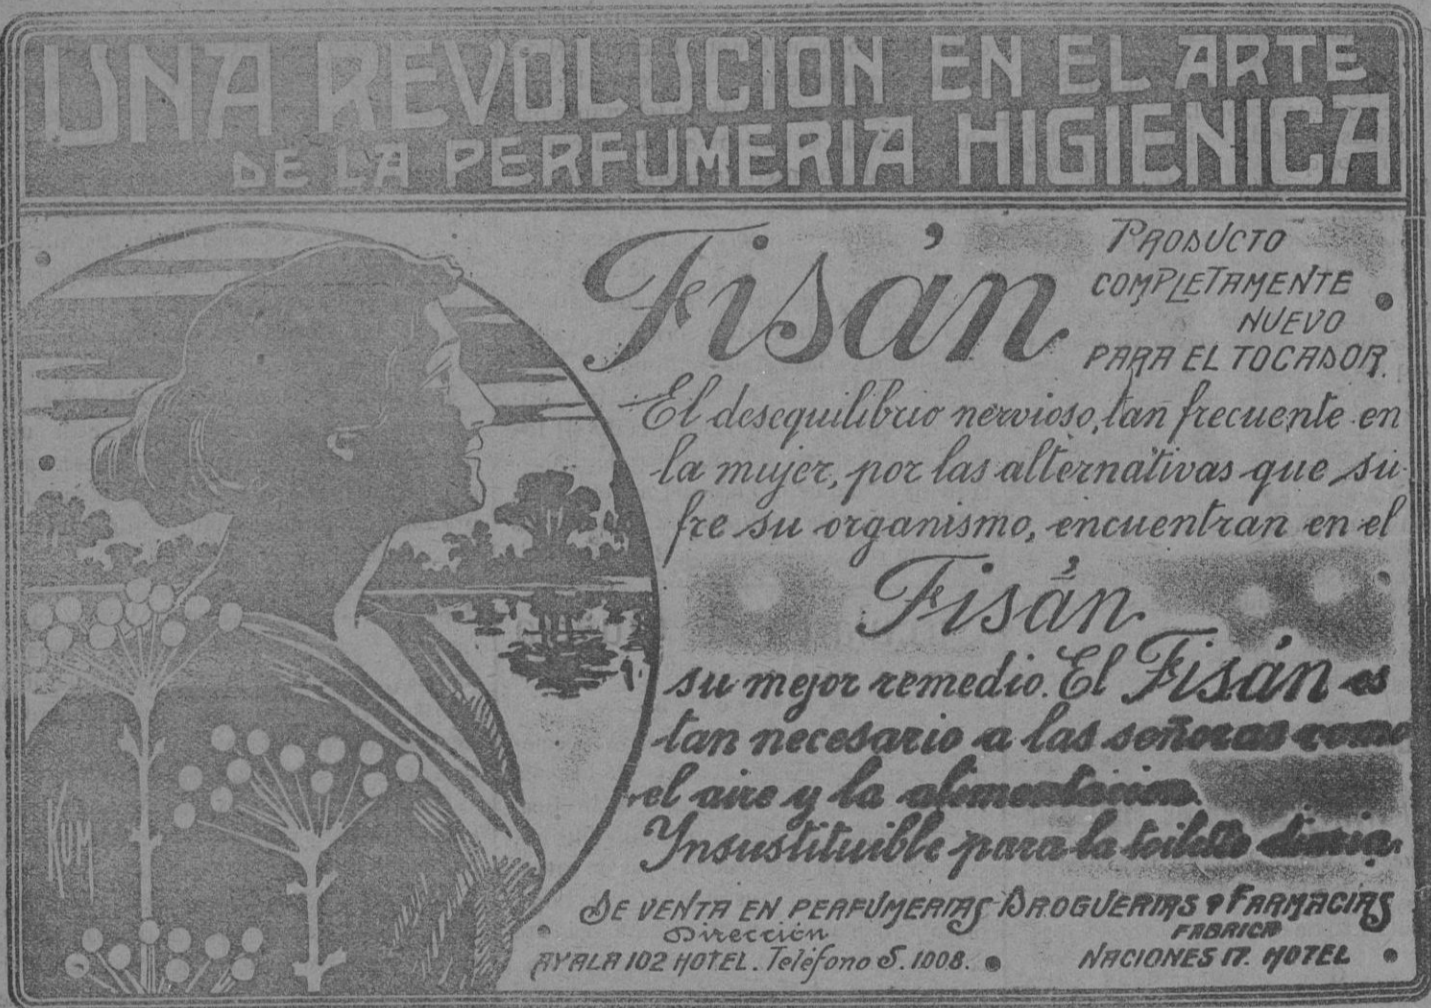 UNA REVOLUCION EN EL ARTE
DE LA PERFUMERIA HIGIENICA
Fisán
PRODUCTO
COMPLETAMENTE
NUEVO
PARA EL TOCADOR.
El desequilibrio nervioso, tan frecuente en
la mujer, por las alternativas que su-
fre su organismo, encuentran en el
Fisán
su mejor remedio. El Fisán es
tan necesario a las señoras como
el aire y la alimentacion.
Ynsustituible para la toilette diaria.
DE VENTA EN PERFUMERIAS DROGUERIAS Y FARMACIAS
Dirección
AYALA 102 HOTEL. Teléfono S. 1008.
FABRICA
NACIONES 17. HOTEL
KOM